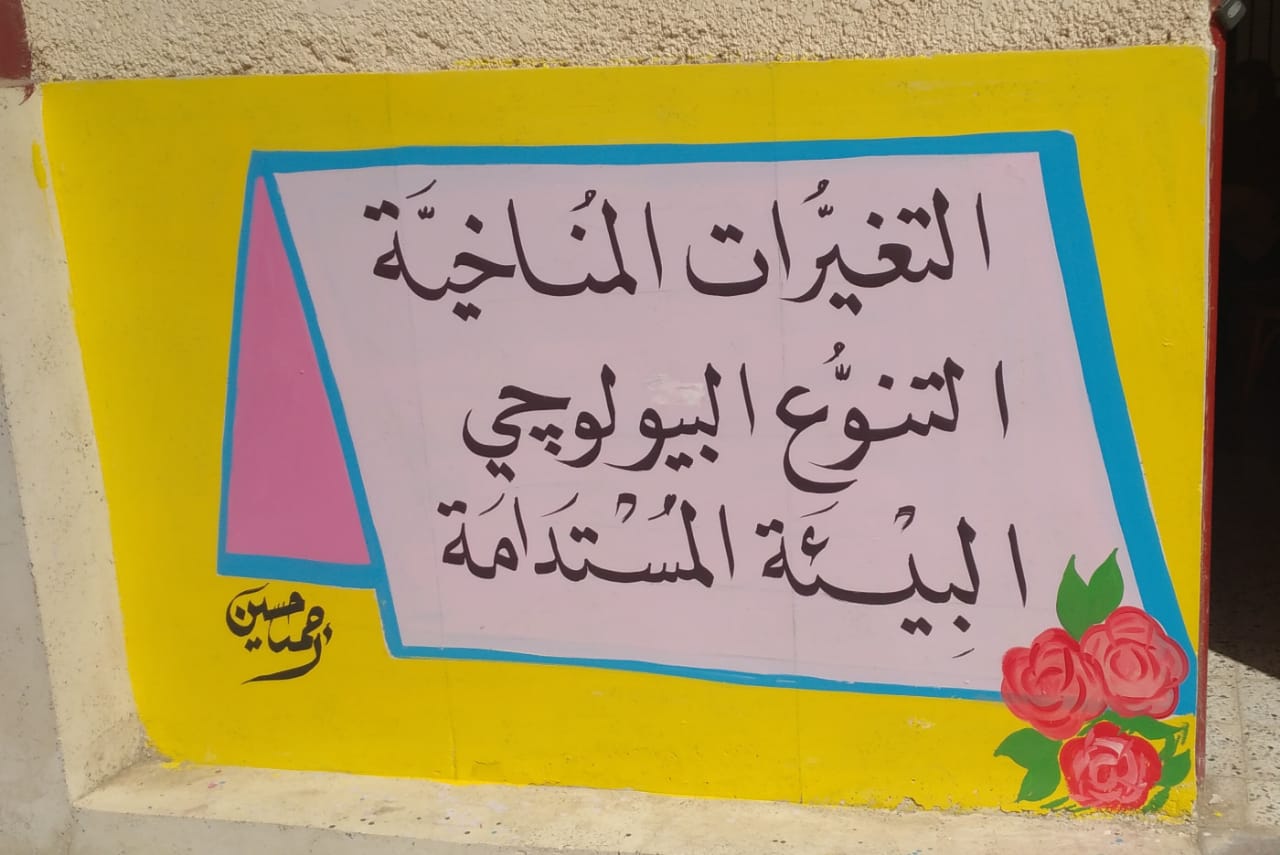 التغيُّرات المُناخيَّة
التنوُّع البيولوچي
البِيْئَة المُسْتَدَامَة
حسين